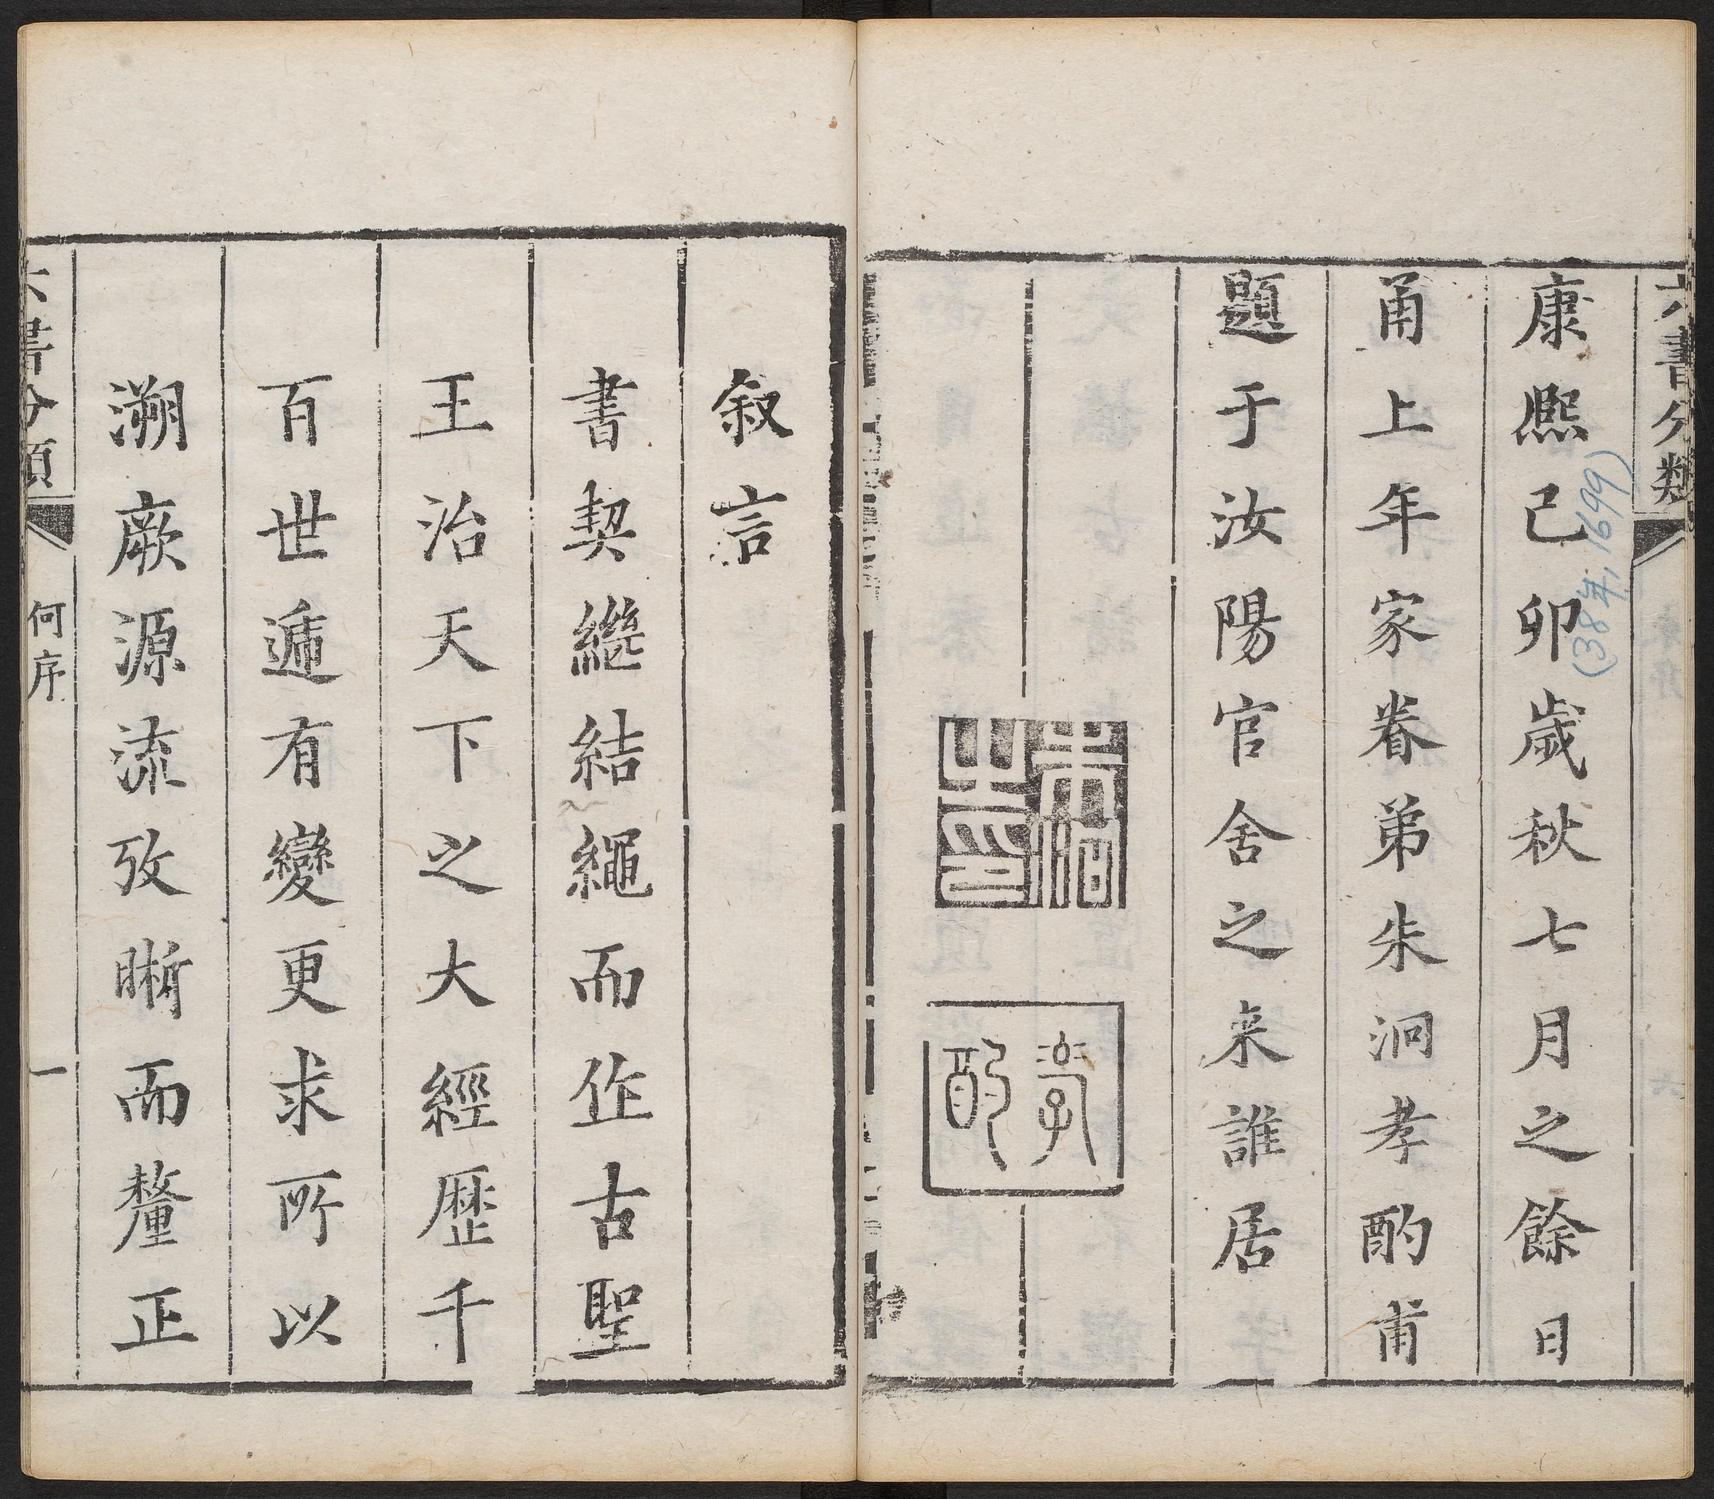 六書分類
康熈己卯歲秋七月之餘日
甬上年家眷弟朱泂孝酌甫
題于汝陽官舍之来誰居
朱泂之印
孝酌
(38年, 1699)
叙言
書契继結繩而作古聖
王治天下之大經歷千
百世遞有變更求所以
溯厥源流攷晰而釐正
六書分類
何序
一